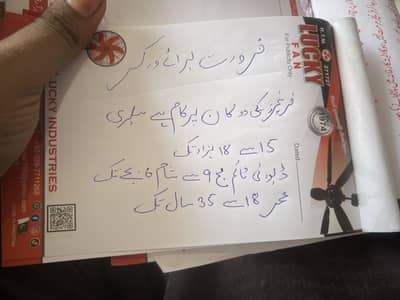 ضرورت برائے ورکر
فرنیچر کی دوکان پر کام ہے سیلری
15 سے 18 ہزار تک
ڈیوٹی ٹائم صبح 9 سے شام 6 بجے تک
عمر 18 سے 35 سال تک
LUCKY
FAN
For Publicity Only
Dated
LUCKY INDUSTRIES